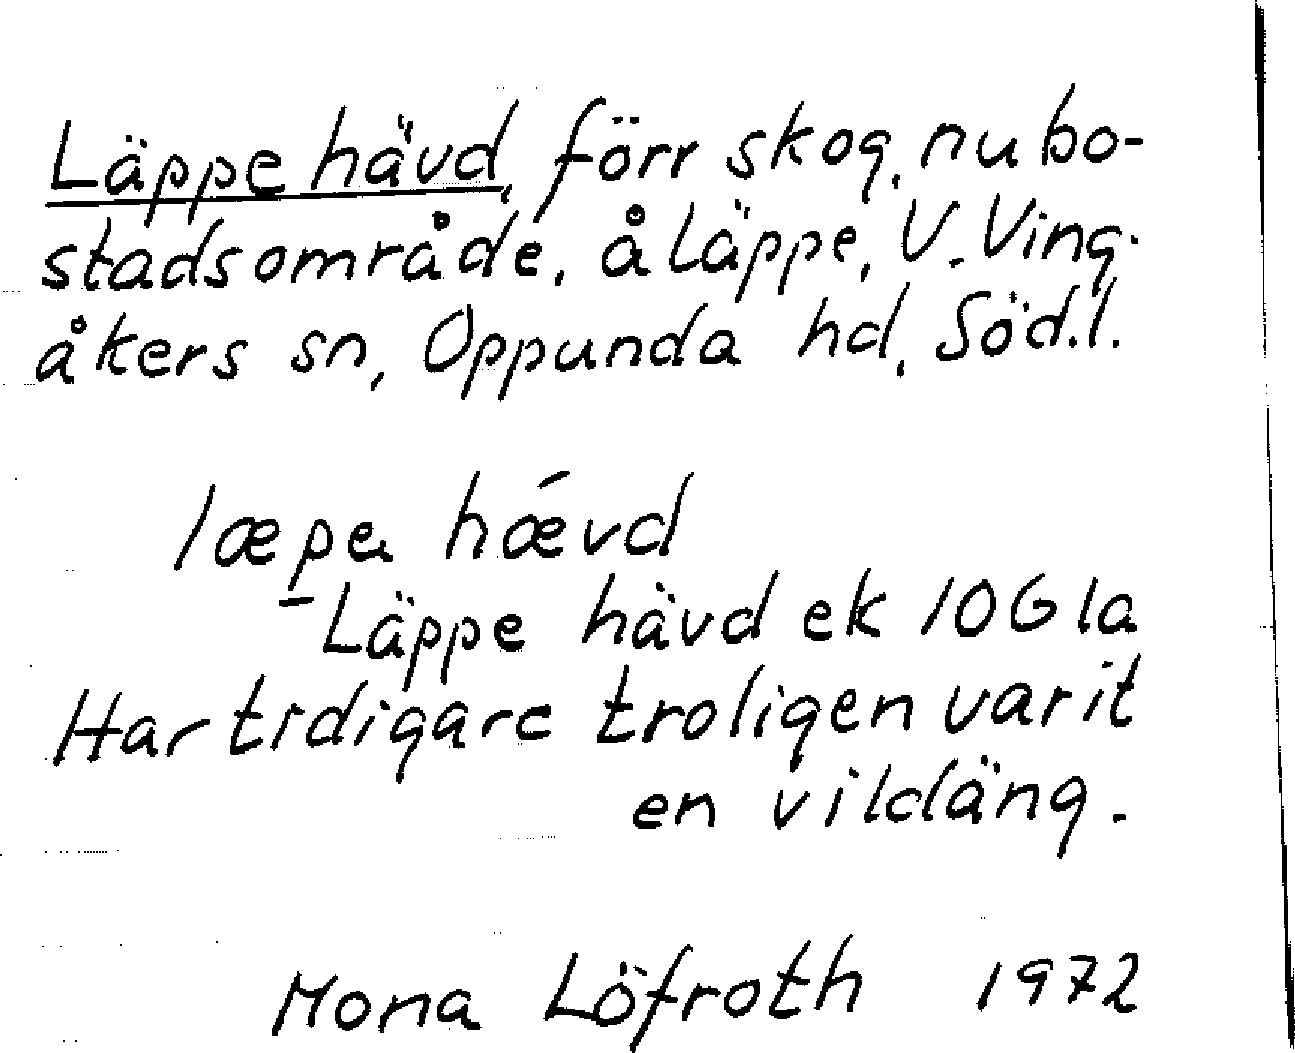 Läppe hävd, förr skog, nu bo-
stadsområde, å Läppe, V. Ving-
åkers sn, Oppunda hd, Söd.l.
læpa hǽvd
Läppe hävd ek 10G 1a
Har tidigare troligen varit
en vildäng.
Mona Löfroth 1972